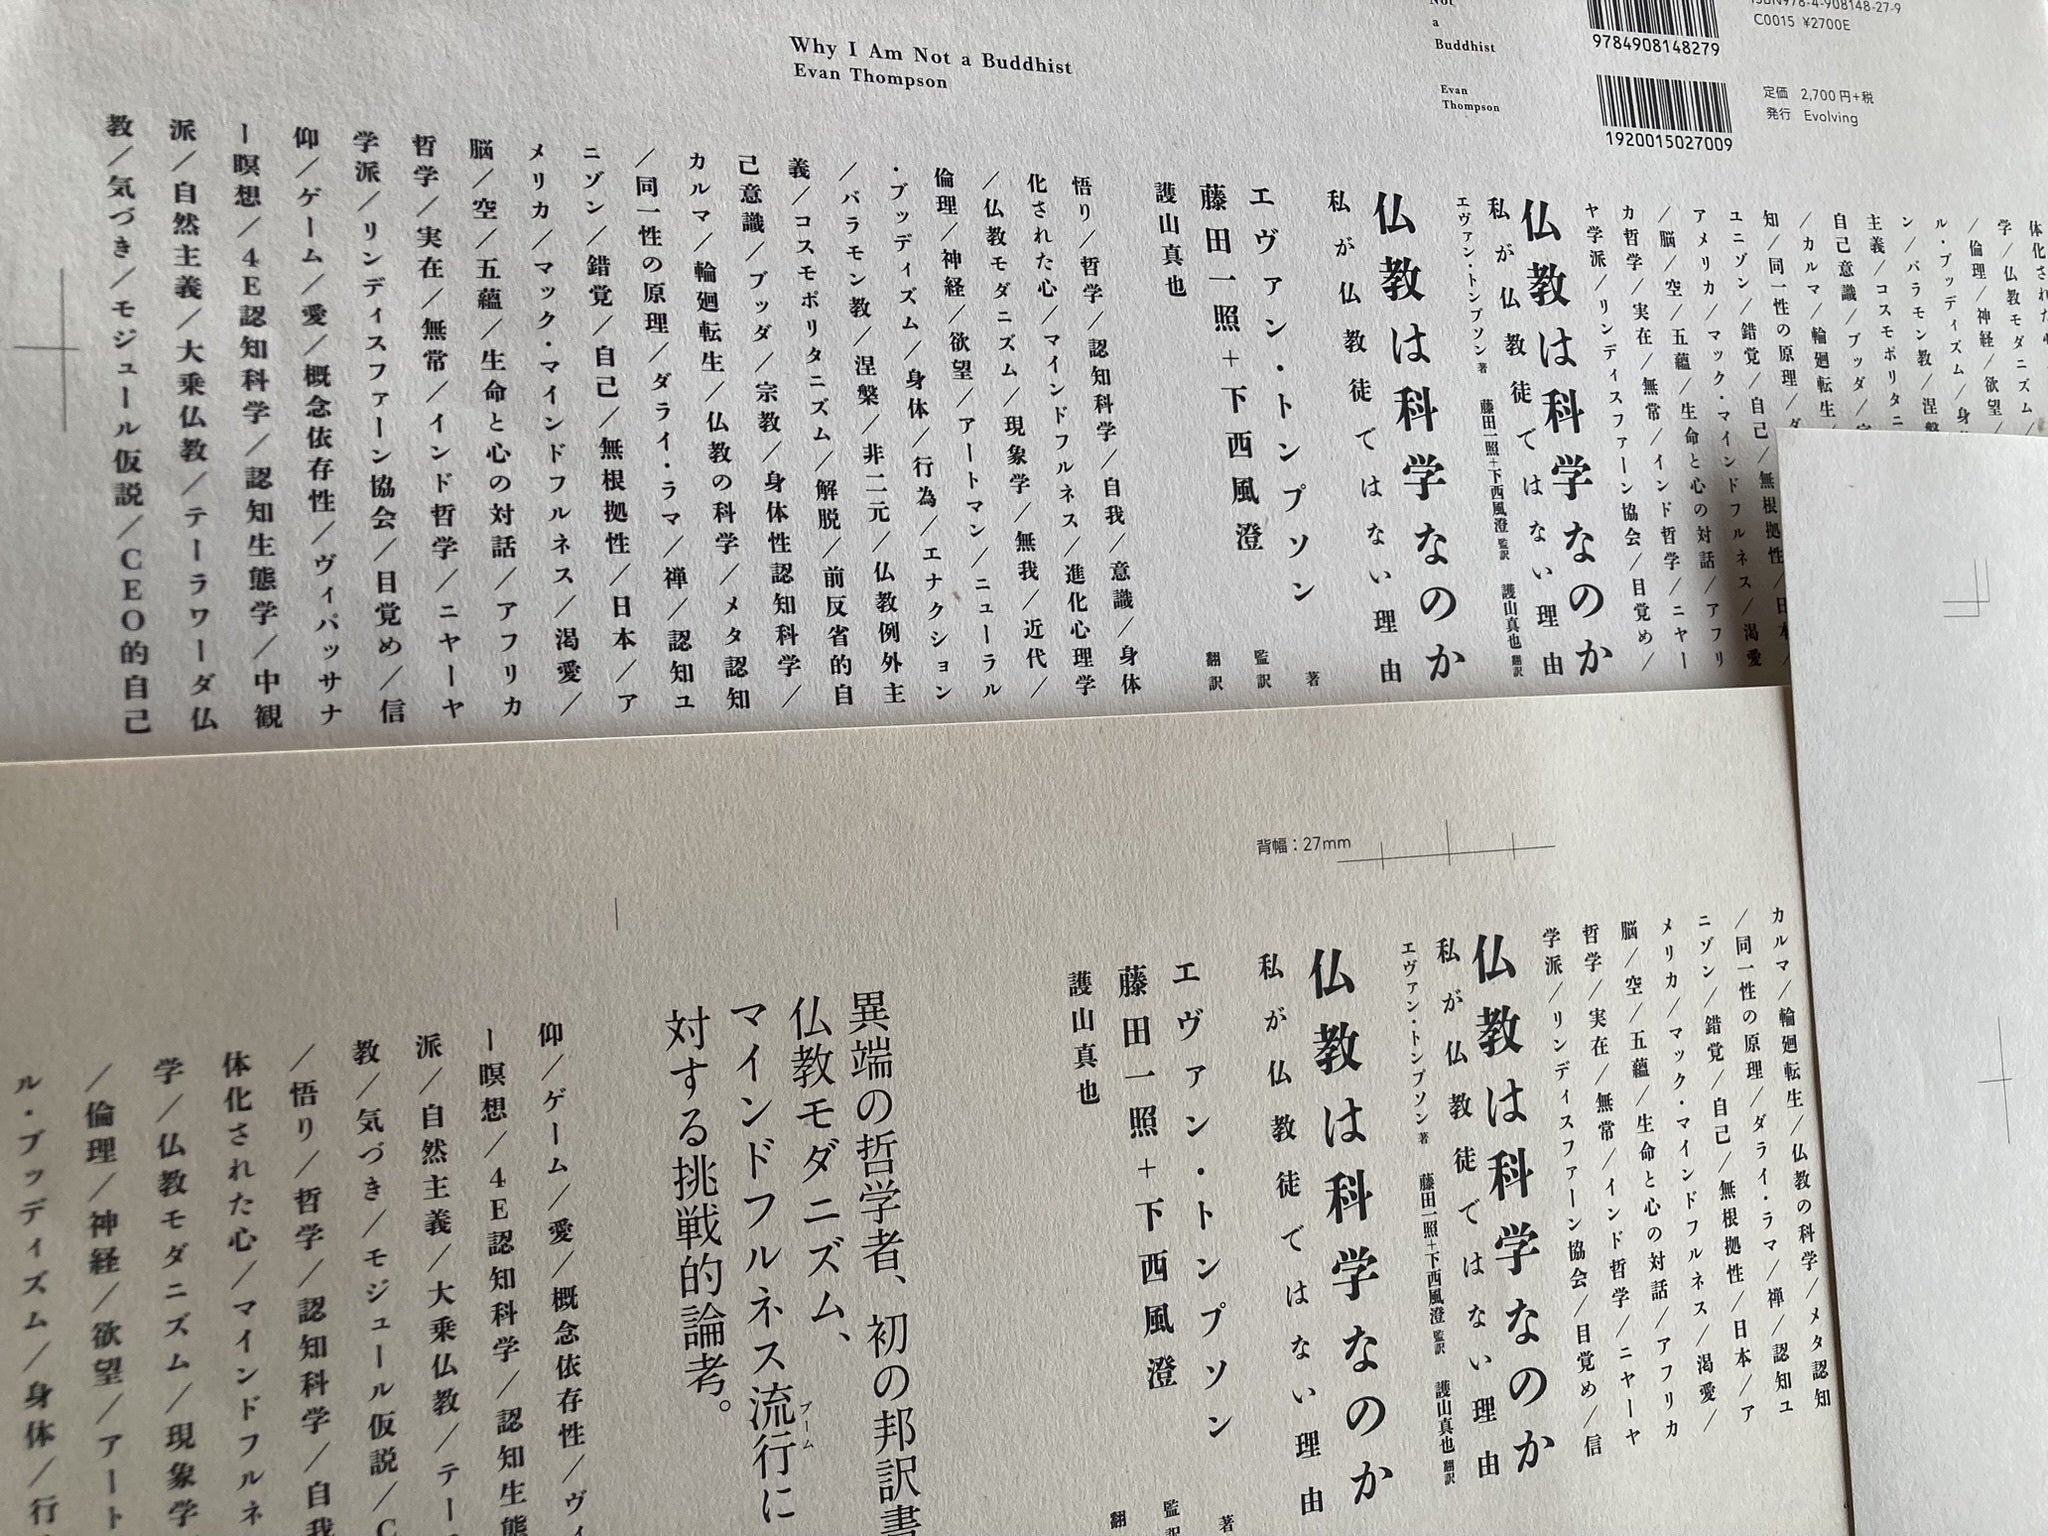 Why I Am Not a Buddhist
Evan Thompson
Not
a
Buddhist
Evan
Thompson
ISBN978-4-908148-27-9
C0015 ¥2700E
9784908148279
1920015027009
定価 2,700円+税
発行 Evolving
体化された
学/仏教モダニズム
/倫理/神経/欲望
ル・ブッディズム/身
ン/バラモン教/涅槃
主義/コスモポリタニ
自己意識/ブッダ/宗
/カルマ/輪廻転生
知/同一性の原理/ダ
ユニゾン/錯覚/自己/無根拠性/日本/
アメリカ/マック・マインドフルネス/渇愛
/脳/空/五蘊/生命と心の対話/アフリ
カ哲学/実在/無常/インド哲学/ニヤー
ヤ学派/リンディスファーン協会/目覚め/
仏教は科学なのか
私が仏教徒ではない理由
エヴァン・トンプソン 著 藤田一照+下西風澄 監訳 護山真也 翻訳
仏教は科学なのか
私が仏教徒ではない理由
エヴァン・トンプソン 著
藤田一照+下西風澄 監訳
護山真也 翻訳
悟り/哲学/認知科学/自我/意識/身体
化された心/マインドフルネス/進化心理学
/仏教モダニズム/現象学/無我/近代/
倫理/神経/欲望/アートマン/ニューラル
・ブッディズム/身体/行為/エナクション
/バラモン教/涅槃/非二元/仏教例外主
義/コスモポリタニズム/解脱/前反省的自
己意識/ブッダ/宗教/身体性認知科学/
カルマ/輪廻転生/仏教の科学/メタ認知
/同一性の原理/ダライ・ラマ/禅/認知ユ
ニゾン/錯覚/自己/無根拠性/日本/ア
メリカ/マック・マインドフルネス/渇愛/
脳/空/五蘊/生命と心の対話/アフリカ
哲学/実在/無常/インド哲学/ニヤーヤ
学派/リンディスファーン協会/目覚め/信
仰/ゲーム/愛/概念依存性/ヴィパッサナ
ー瞑想/4E認知科学/認知生態学/中観
派/自然主義/大乗仏教/テーラワーダ仏
教/気づき/モジュール仮説/CEO的自己
背幅:27mm
カルマ/輪廻転生/仏教の科学/メタ認知
/同一性の原理/ダライ・ラマ/禅/認知ユ
ニゾン/錯覚/自己/無根拠性/日本/ア
メリカ/マック・マインドフルネス/渇愛/
脳/空/五蘊/生命と心の対話/アフリカ
哲学/実在/無常/インド哲学/ニヤーヤ
学派/リンディスファーン協会/目覚め/信
仏教は科学なのか
私が仏教徒ではない理由
エヴァン・トンプソン 著 藤田一照+下西風澄 監訳 護山真也 翻訳
仏教は科学なのか
私が仏教徒ではない理由
エヴァン・トンプソン 著
藤田一照+下西風澄 監訳
護山真也 翻
異端の哲学者、初の邦訳書
仏教モダニズム、
マインドフルネス流行に
ブーム
対する挑戦的論考。
仰/ゲーム/愛/概念依存性/ヴィ
ー瞑想/4E認知科学/認知生態
派/自然主義/大乗仏教/テー
教/気づき/モジュール仮説/C
/悟り/哲学/認知科学/自我
体化された心/マインドフルネ
学/仏教モダニズム/現象学
/倫理/神経/欲望/アート
ル・ブッディズム/身体/行